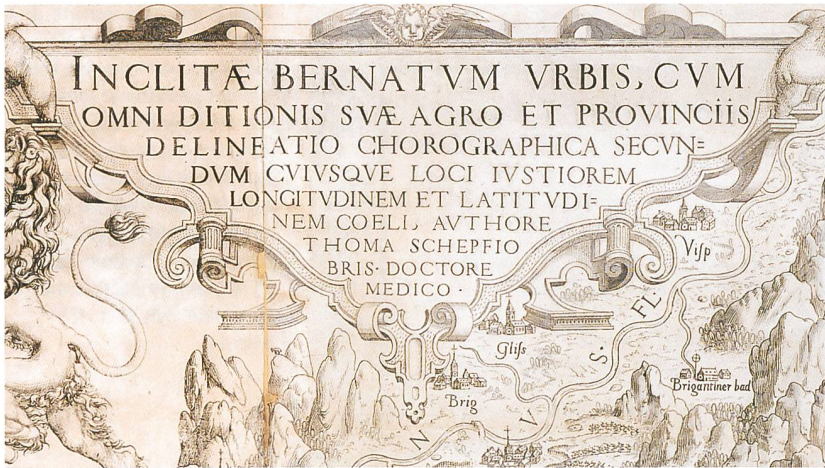 INCLITÆ BERNATVM VRBIS, CVM
OMNI DITIONIS SVÆ AGRO ET PROVINCIIS
DELINEATIO CHOROGRAPHICA SECVN=
DVM CVIVSQVE LOCI IVSTIOREM
LONGITVDINEM ET LATITVDI=
NEM COELI, AVTHORE
THOMA SCHEPFIO
BRIS· DOCTORE
MEDICO ·
Visp
FL
S ·
Gliss
Brigantiner bad
Brig
V
N